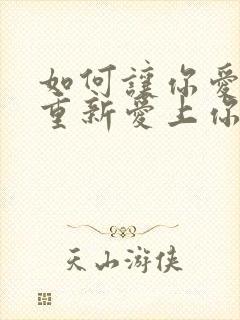 如何讓你愛
重新愛上你
天山游侠